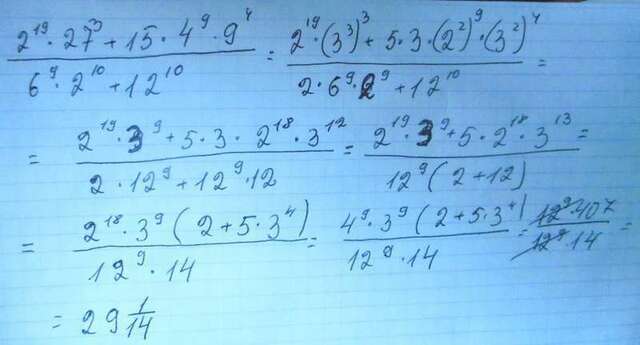 (2^19 · 27^3 + 15 · 4^9 · 9^4) / (6^9 · 2^10 + 12^10) = (2^19 · (3^3)^3 + 5 · 3 · (2^2)^9 · (3^2)^4) / (2 · 6^9 · 2^9 + 12^10) =
= (2^19 · 3^9 + 5 · 3 · 2^18 · 3^12) / (2 · 12^9 + 12^9 · 12) = (2^19 · 3^9 + 5 · 2^18 · 3^13) / (12^9 (2 + 12)) =
= (2^18 · 3^9 (2 + 5 · 3^4)) / (12^9 · 14) = (4^9 · 3^9 (2 + 5 · 3^4)) / (12^9 · 14) = (12^9 · 407) / (12^9 · 14) =
= 29 1/14